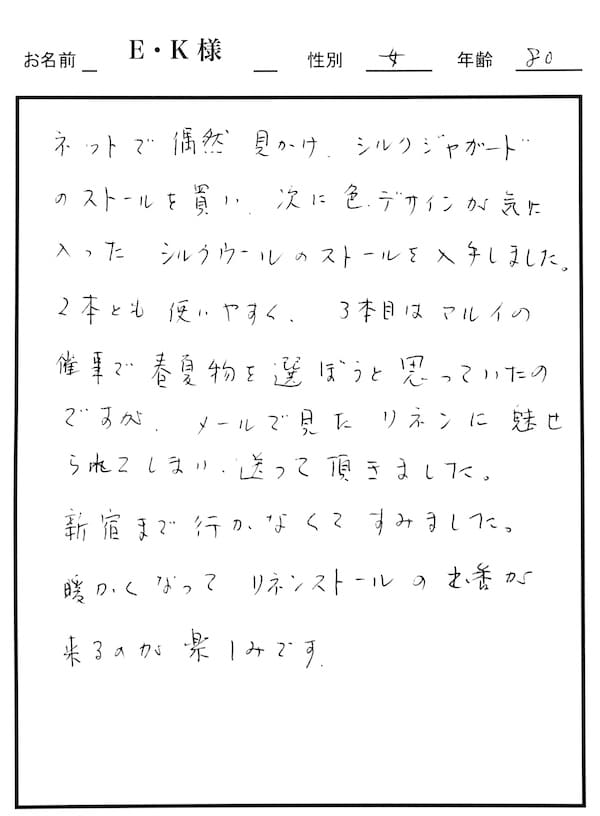 お名前 E・K様 性別 女 年齢 80
ネットで偶然見かけ、シルクジャガード
のストールを買い、次に色、デザインが気に
入ったシルクウールのストールを入手しました。
2本とも使いやすく、3本目はマルイの
催事で春夏物を選ぼうと思っていたの
ですが、メールで見たリネンに魅せ
られてしまい、送って頂きました。
新宿まで行かなくてすみました。
暖かくなってリネンストールの出番が
来るのが楽しみです。